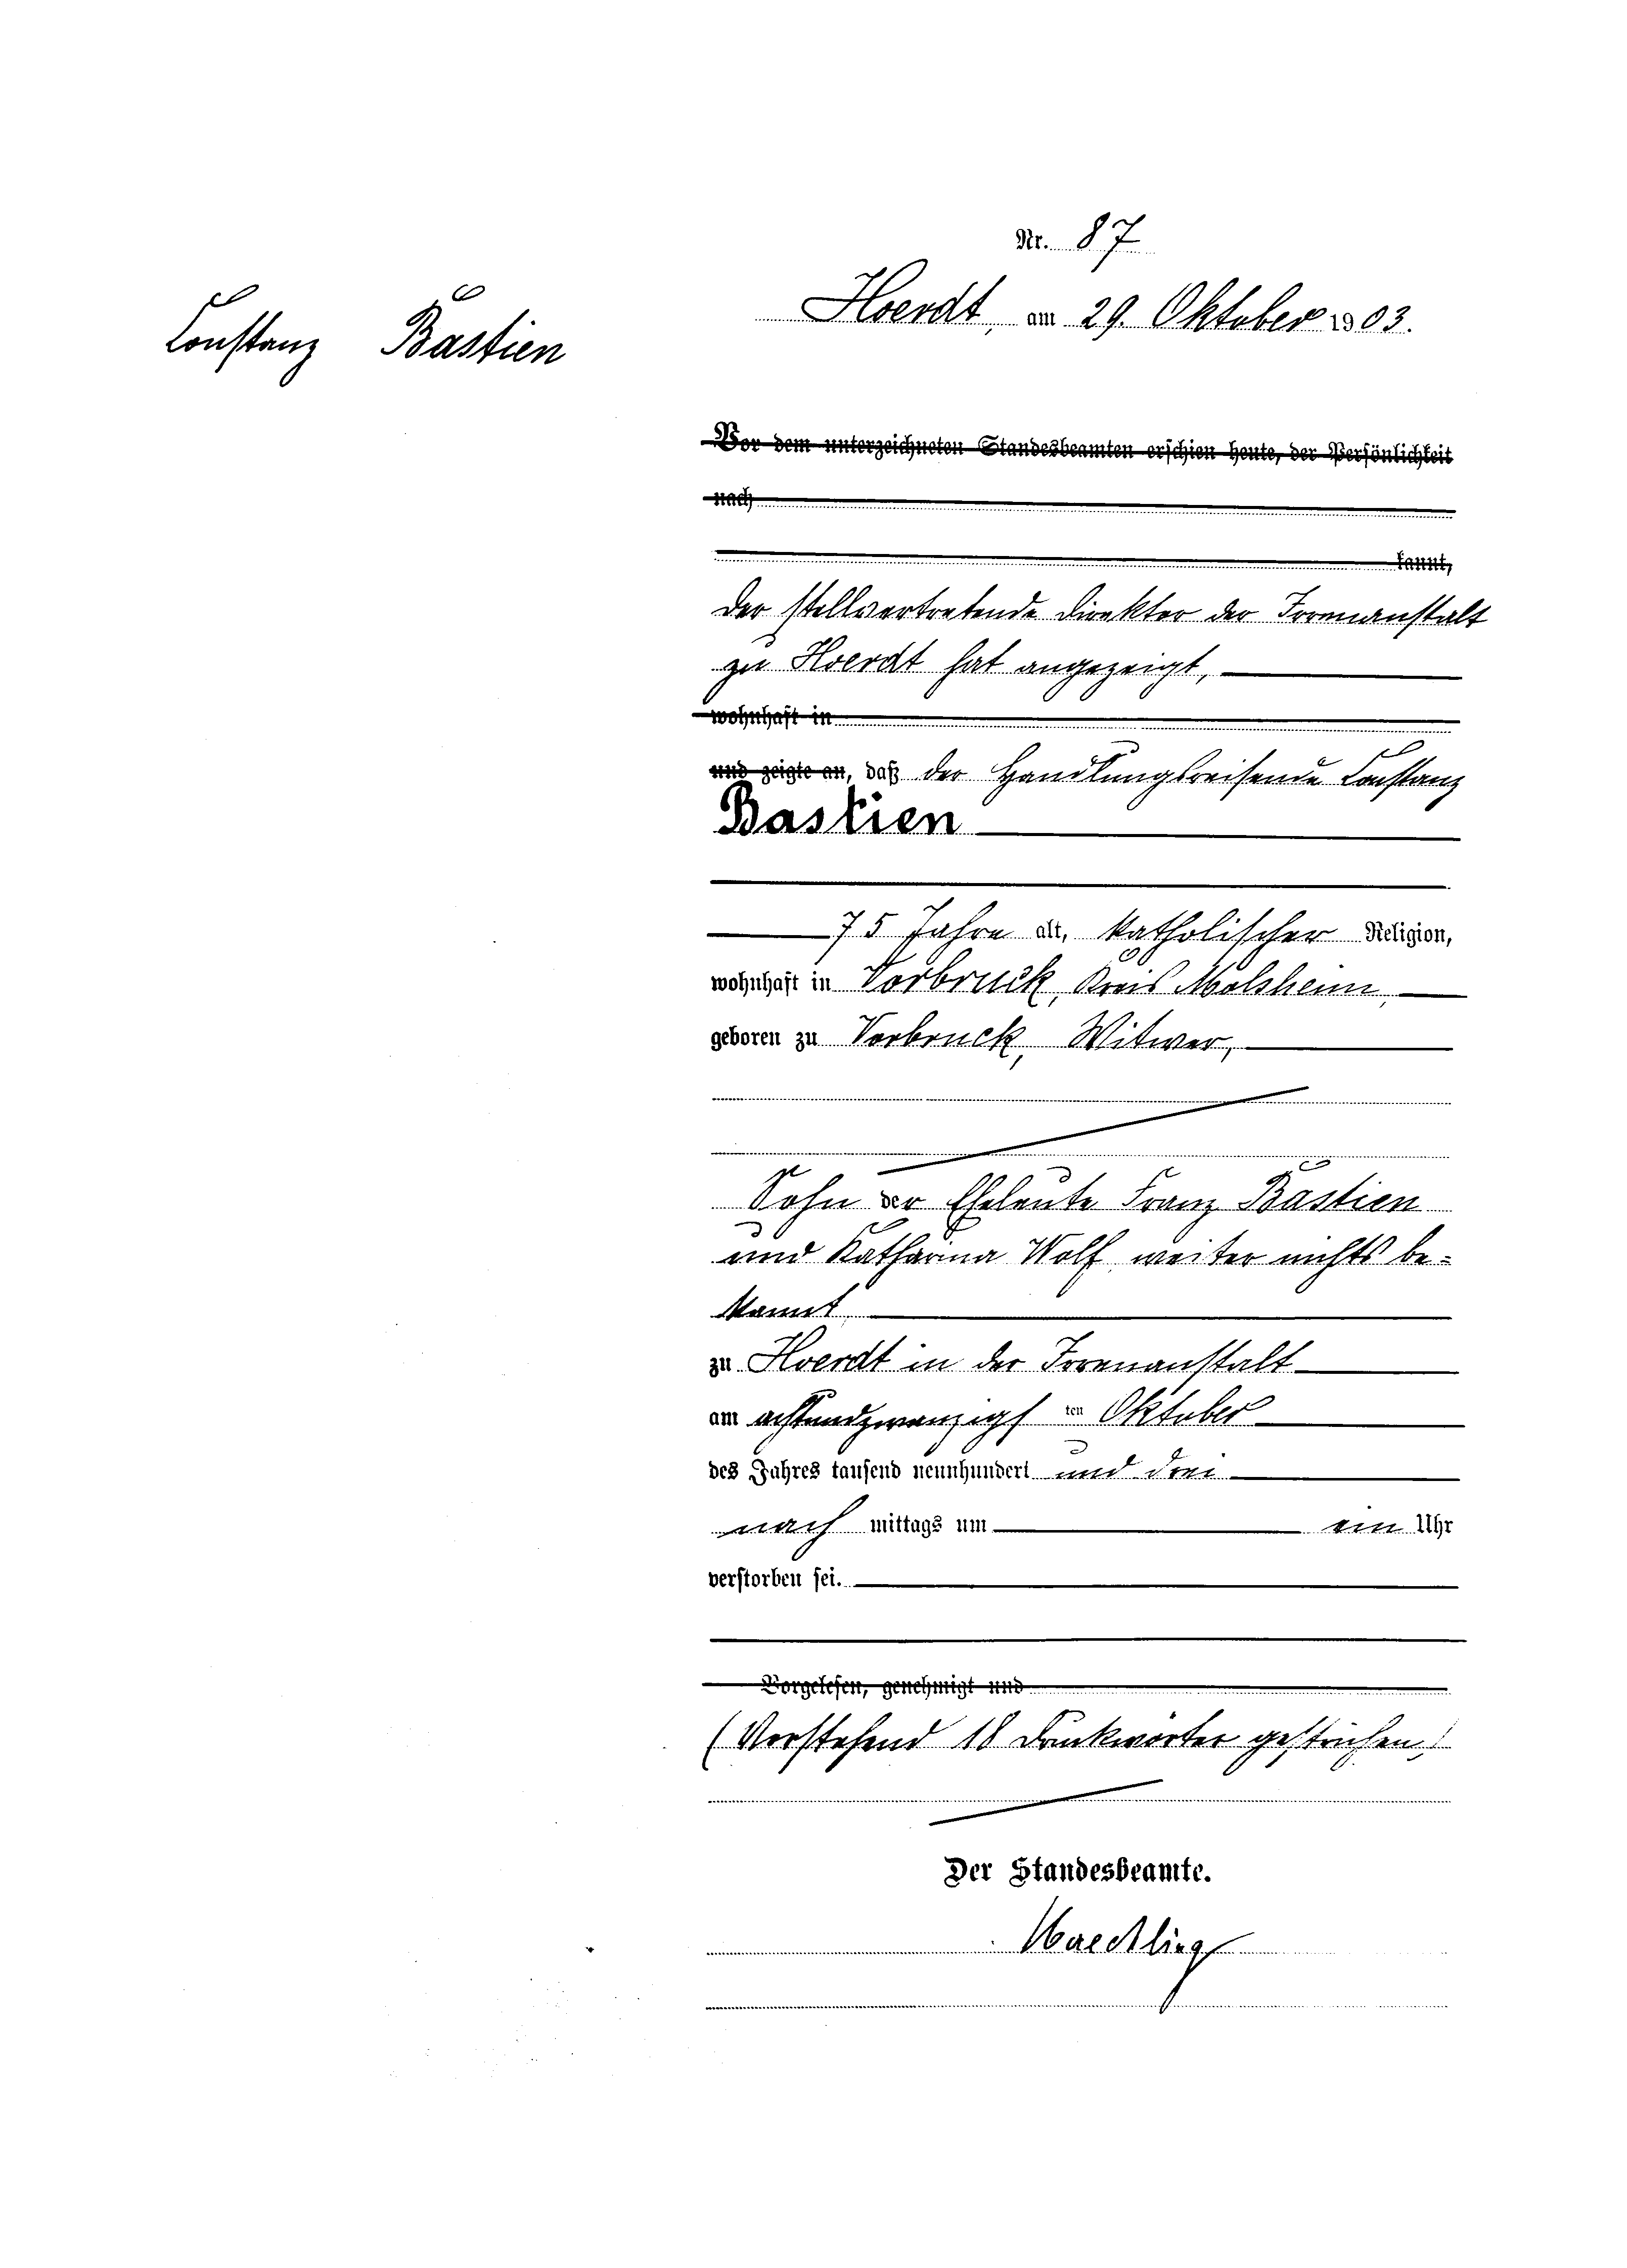 Nr. 87
Hoerdt, am 29. Oktober 1903.
Constanz Bastien
Vor dem unterzeichneten Standesbeamten erschien heute, der Persönlichkeit
nach
kannt,
der stellvertretende Direktor der Irrenanstalt
zu Hoerdt hat angezeigt,
wohnhaft in
und zeigte an, daß der Handlungsreisende Constanz
Bastien
75 Jahre alt, katholischer Religion,
wohnhaft in Vorbruck, Kreis Molsheim,
geboren zu Vorbruck, Witwer,
Sohn der Eheleute Franz Bastien
und Katharina Wolf, weiter nichts be=
kannt
zu Hoerdt in der Irrenanstalt
am achtundzwanzigsten Oktober
des Jahres tausend neunhundert und drei
nach mittags um ein Uhr
verstorben sei.
Vorgelesen, genehmigt und
(Vorstehend 18 Druckwörter gestrichen.)
Der Standesbeamte.